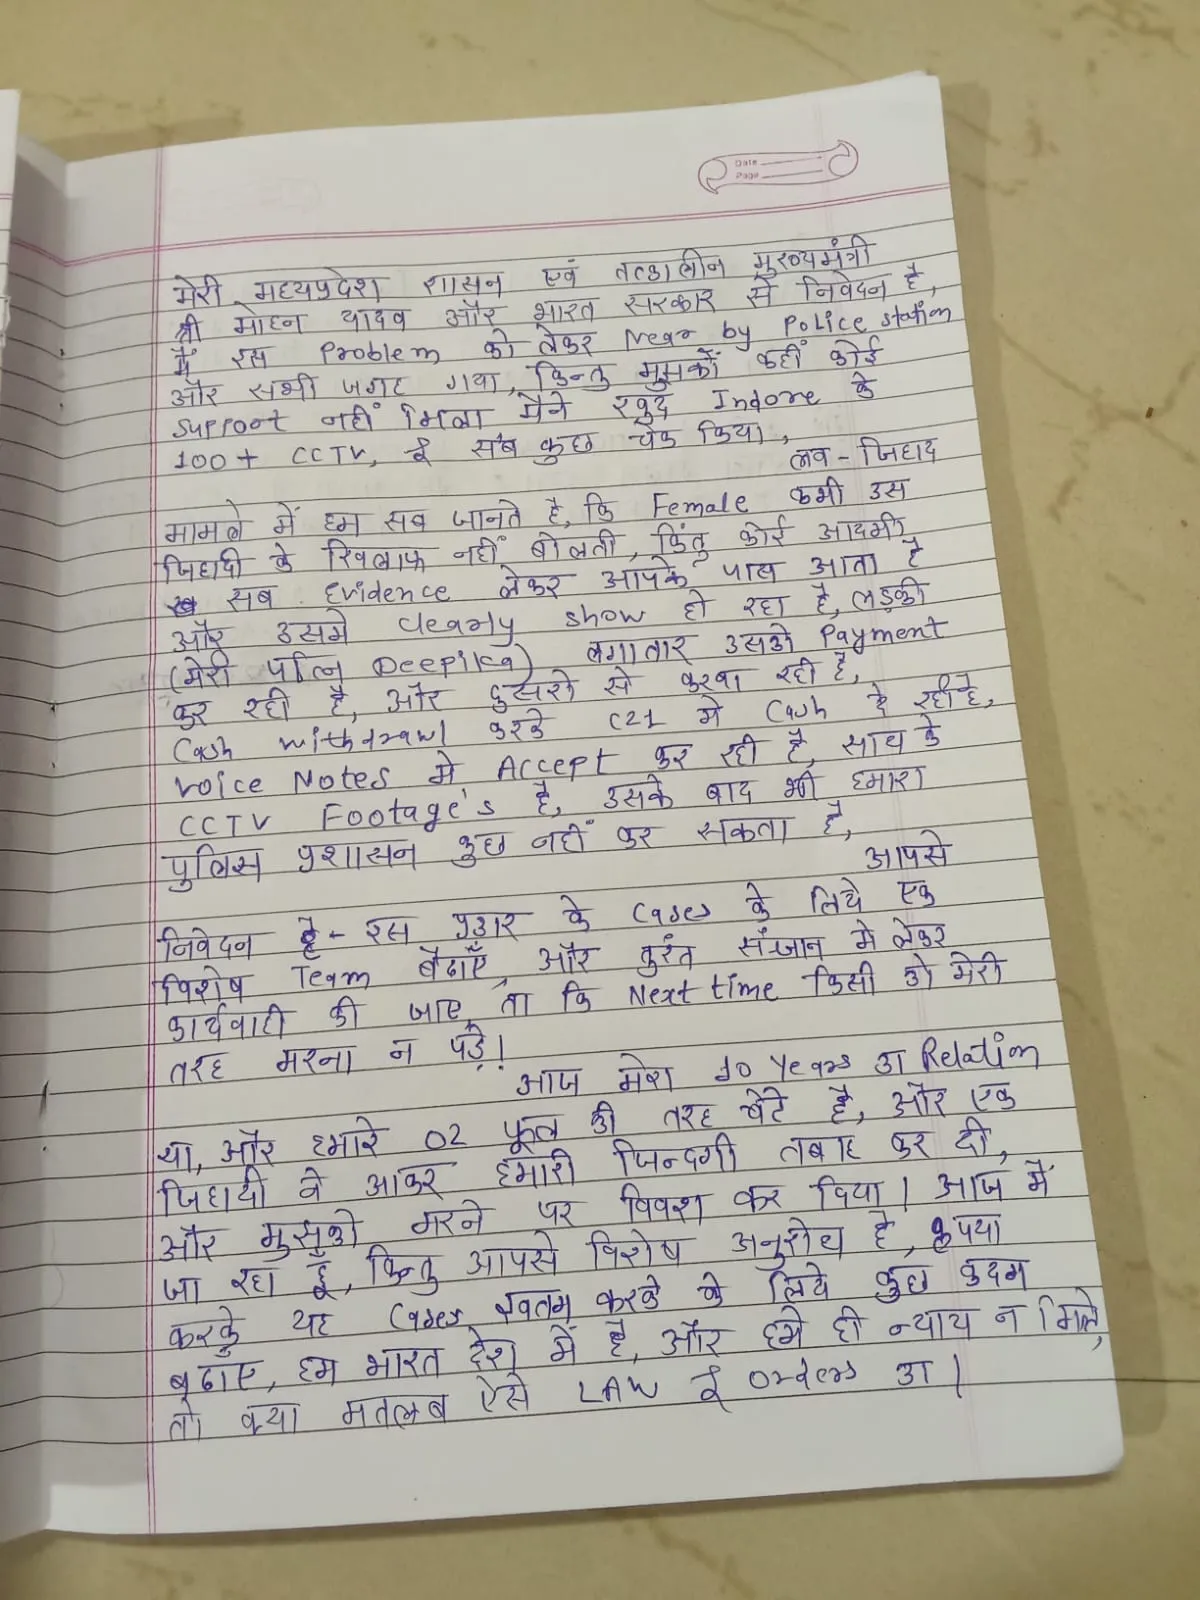 Date
Page
मेरी मध्यप्रदेश शासन एवं तत्कालीन मुख्यमंत्री
श्री मोहन यादव और भारत सरकार से निवेदन है,
मैं इस Problem को लेकर Near by Police station
और सभी जगह गया, किन्तु मुझको कहीं कोई
support नहीं मिला मैने खुद Indore के
100+ CCTV, & सब कुछ चेक किया,
लव - जिहाद
मामले में हम सब जानते है, कि Female कभी उस
जिहादी के खिलाफ नहीं बोलती, किंतु कोई आदमी
सब Evidence लेकर आपके पास आता है
और उसमे clearly show हो रहा है, लड़की
(मेरी पत्नि Deepika) लगातार उसको Payment
कर रही है, और दुसरो से करवा रही है,
Cash withdrawl करके C21 मे Cash दे रही है,
Voice Notes मे Accept कर रही है, साथ के
CCTV Footage's है, उसके बाद भी हमारा
पुलिस प्रशासन कुछ नहीं कर सकता है,
आपसे
निवेदन है - इस प्रकार के Cases के लिये एक
विशेष Team बैठाएँ, और तुरंत संज्ञान मे लेकर
कार्यवाही की जाए, ता कि Next time किसी को मेरी
तरह मरना न पड़े!
आज मेरा 10 Years का Relation
था, और हमारे 02 फूल की तरह बेटे है, और एक
जिहादी ने आकर हमारी जिन्दगी तबाह कर दी,
और मुझको मरने पर विवश कर दिया। आज मैं
जा रहा हूँ, किन्तु आपसे विशेष अनुरोध है, कृपया
करके यह Cases खतम करके के लिये कुछ कदम
बढाए, हम भारत देश में है, और हमे ही न्याय न मिले,
तो क्या मतलब ऐसे LAW & Orders का।